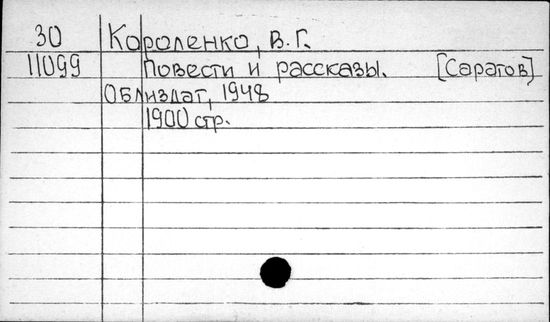 30 Короленко, В.Г.
11099 Повести и рассказы. [Саратов]
Облиздат, 1948
1900 стр.